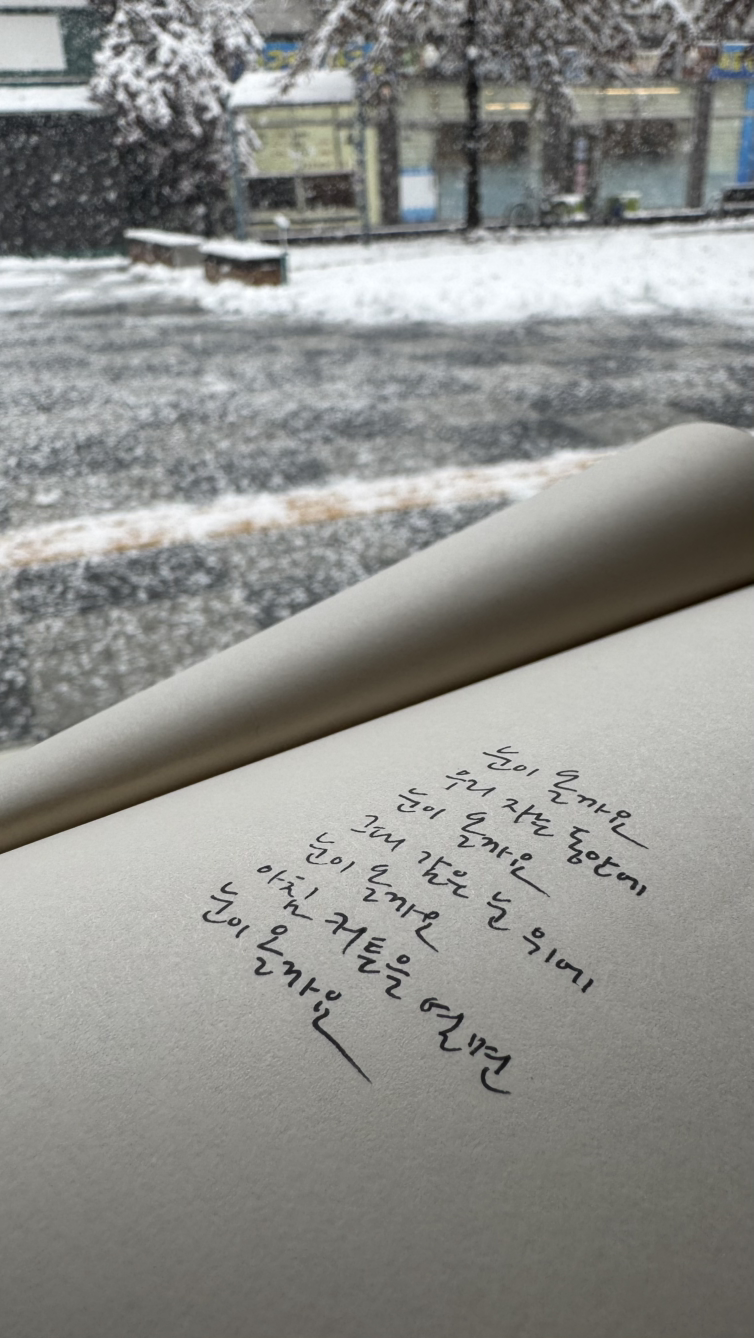 눈이 올까요
우리 자는 동안에
눈이 올까요
그대 감은 눈 위에
눈이 올까요
아침 커튼을 열면
눈이 올까요